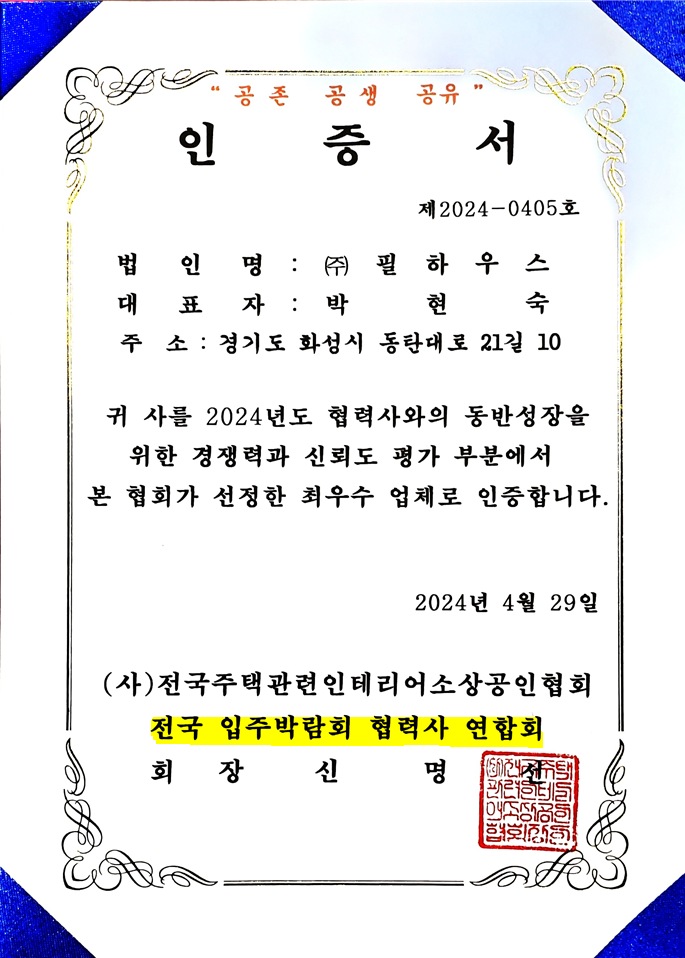 “ 공존 공생 공유 ”
인 증 서
제2024-0405호
법 인 명 : ㈜ 필 하 우 스
대 표 자 : 박 현 숙
주 소 : 경기도 화성시 동탄대로 21길 10
귀 사를 2024년도 협력사와의 동반성장을
위한 경쟁력과 신뢰도 평가 부분에서
본 협회가 선정한 최우수 업체로 인증합니다.
2024년 4월 29일
(사)전국주택관련인테리어소상공인협회
전국 입주박람회 협력사 연합회
회 장 신 명 선